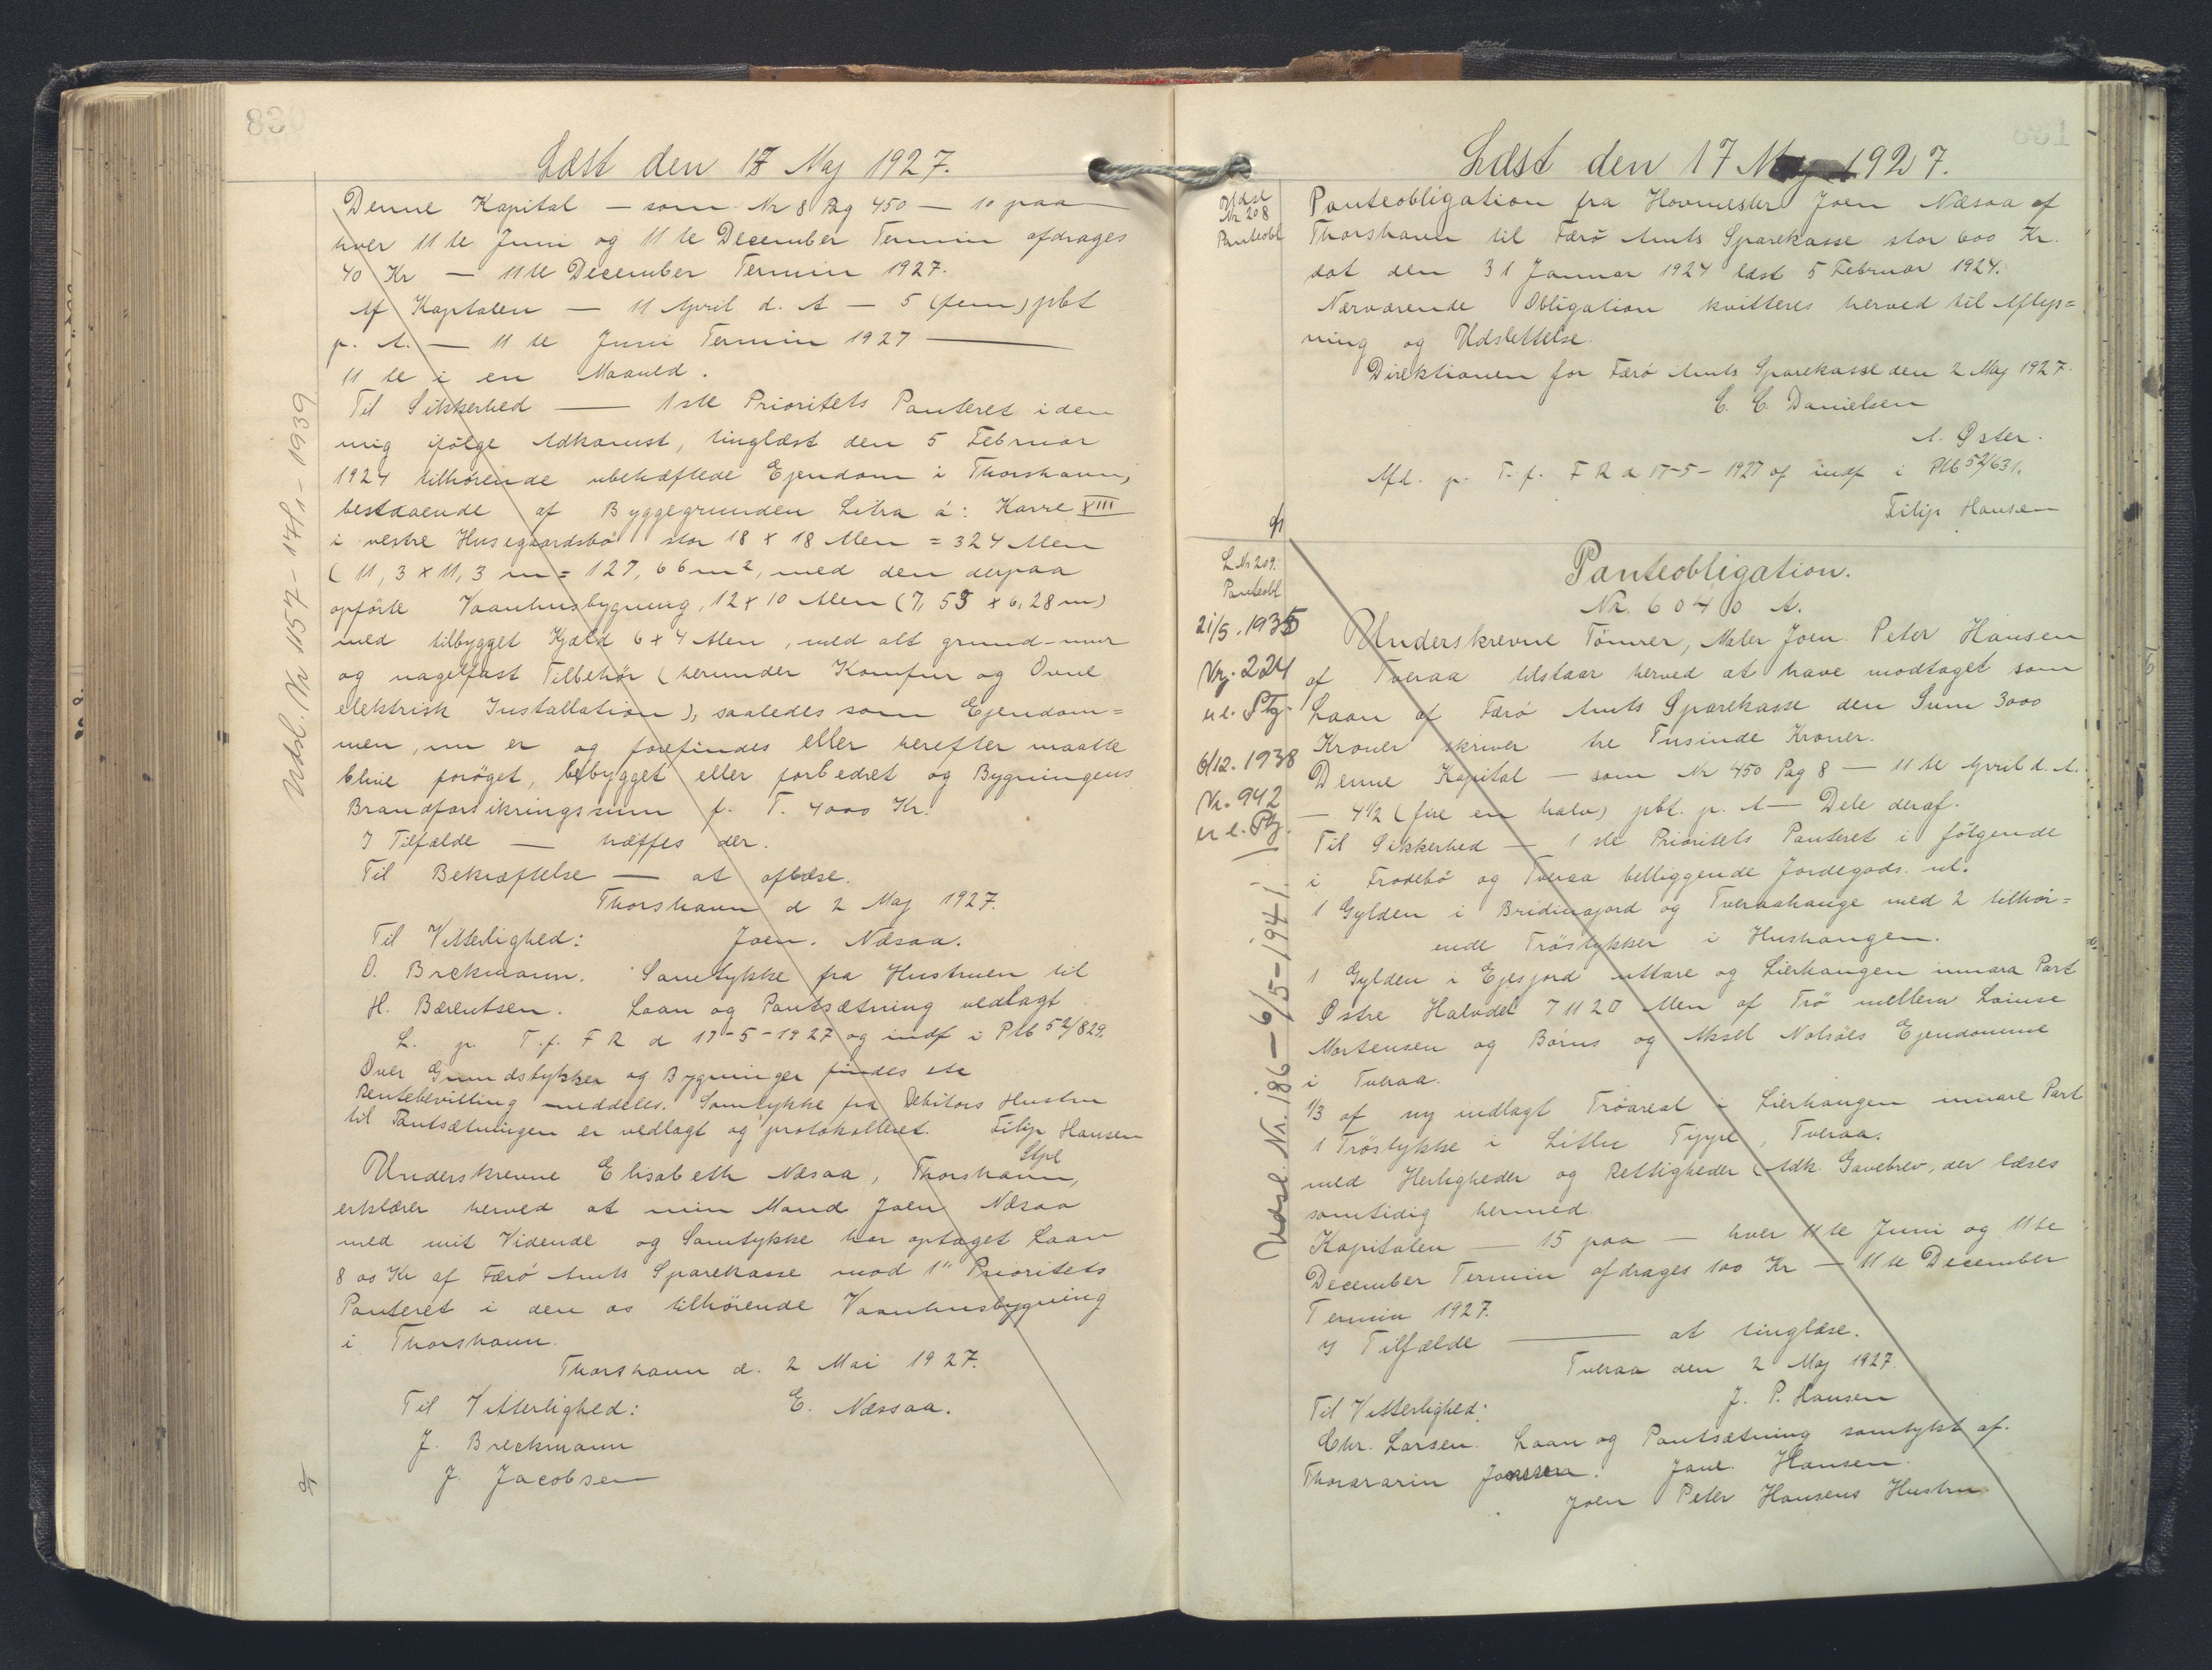 830
Læst den 17 Maj 1927.
Denne Kapital — som Nr 8 Pag 450 — 10 paa
hver 11 te Juni og 11 te December Termin afdrages
40 Kr — 11 te December Termin 1927.
Af Kaptalen — 11 April d. A — 5 (fem) pbt
p. A. — 11 te Juni Termin 1927 —
11 te i en Maaned.
Til Sikkerhed — 1ste Prioritets Panteret i den
mig ifølge Adkomst, tinglæst den 5 Februar
1924 tilhørende ubehæftede Ejendom i Thorshavn,
bestaaende af Byggegrunden Litra á: Karre XIII
i vestre Husegaardsbø stor 18 x 18 Alen = 324 Alen
(11,3 x 11,3 m = 127,66 m2, med den derpaa
opførte Vaanhusbygning, 12 x 10 Alen (7,53 x 6,28 m)
med tilbygget Kjæld 6 x 4 Alen, med alt grund-mur
og nagelfast Tilbehør (herunder Komfur og Ovne
elektrisk Installation), saaledes som Ejendom=
men, nu er og forefindes eller herefter maatte
blive forøget, bebygget eller forbedret og Bygningens
Brandforsikringssum f. T. 4000 Kr.
I Tilfælde — træffes der.
Til Bekræftelse — at aflæse.
Thorshavn d 2 Maj 1927.
Til Vitterlighed: Joen. Næsaa.
O. Brekmann. Samtykke fra Hustruen til
H. Bærentsen. Laan og Pantsætning vedlagt
L. p. T. f. F R d 17-5-1927 og indf i Plb 52/829.
Over Grundstykker og Bygninger findes ete
Rentebevilling meddeles. Samtykke fra Debitors Hustru
til Pantsætningen er vedlagt og protokolleret. Filip Hansen
Stpl
Underskrevne Elisabeth Næsaa, Thorshavn,
erklærer herved at min Mand Joen Næsaa
med mit Vidende og Samtykke har optaget Laan
800 Kr af Færø Amts Sparekasse mod 1" Prioritets
Panteret i den os tilhørende Vaanhusbygning
i Thorshavn.
Thorshavn d. 2 Mai 1927.
Til Vitterlighed: E. Næssaa.
J. Breckmann
J. Jacobsen
Udsl. Nr 1157 - 1939
831
Læst den 17 Maj 1927.
Udsl
Nr 208
Panteobl
Panteobligation fra Hovmester Joen Næsaa af
Thorshavn til Færø Amts Sparekasse stor 600 Kr.
dat den 31 Januar 1924 læst 5 Februar 1924.
Nærværende Obligation kvitteres herved til Aflys=
ning og Udslettelse.
Direktionen for Færø Amts Sparekasse den 2 Maj 1927.
C. C. Danielsen
A. Øster.
Afl. p. T. f. F R d 17-5-1927 og indf i Plb 52/631.
Filip Hansen
L Nr 209.
Panteobl
Panteobligation.
Nr. 6040 A.
21/5.1935
Nr. 224
6/12.1938
Nr. 942
Underskrevne Tømrer, Maler Joen. Peter Hansen
af Tveraa tilstaar herved at have modtaget som
Laan af Færø Amts Sparekasse den Sum 3000
Kroner skriver tre Tusinde Kroner.
Denne Kapital — som Nr 450 Pag 8 — 11 te April d. A.
— 4½ (fire en halv) pbt. p. A — Dele deraf.
Til Sikkerhed — 1 ste Prioritets Panteret i følgende
i Frodebø og Tveraa belliggende Jordegods. nl.
1 Gylden i Bridinajord og Tveraahauge med 2 tilhør=
ende Trøstykker i Hushangen.
1 Gylden i Ejesjord uttare og Lierhangen innara Part
Østre Halvdel 7 1120 Alen af Trø mellem Lainse
Mortensen og Børns og Aksel Nolsøes Ejendomme
i Tveraa.
1/3 af ny indlagt Trøareal i Lierhangen innare Part
1 Trøstykke i Litlu Tippe, Tveraa.
med Herligheder og Rettigheder (Adk. Gavebrev, der læses
samtidig hermed
Kapitalen — 15 paa — hver 11 te Juni og 11 te
December Termin afdrages 100 Kr — 11 te December
Termin 1927.
I Tilfælde — at tinglæse.
Tveraa den 2 Maj 1927.
Til Vitterlighed: J. P. Hansen
Chr. Larsen. Laan og Pantsætning samtykt af.
Thorarin Jonsson. Jane Hansen.
Joen Peter Hansens Hustru
Udsl. Nr. 186 — 6/5-1941.